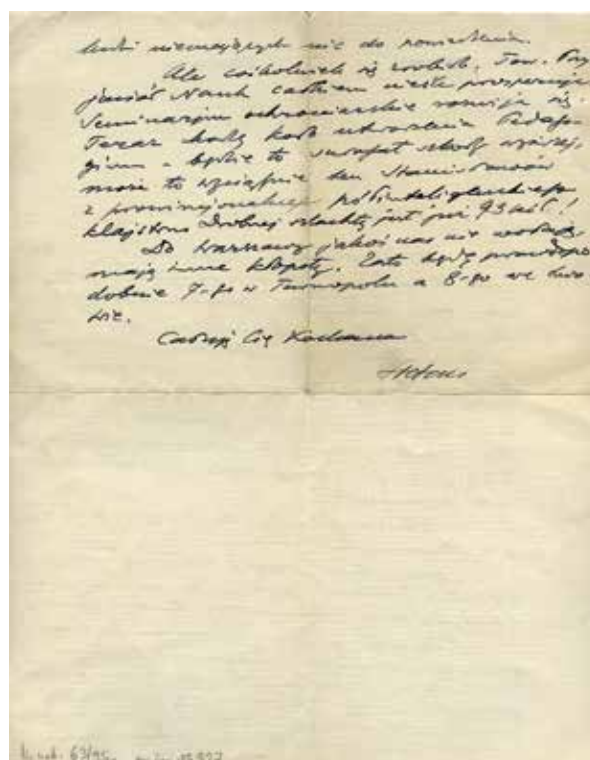 ludzi nie mających nic do powiedzenia.
Ale cośkolwiek się zrobiło. Tow. Przy
jaciół Nauk całkiem nieźle prosperuje
Seminarjum ochroniarskie rozwija się.
Teraz kolej na utworzenie Pedago-
gium - będzie to surogat szkoły wyższej,
może to wyciągnie ten Stanisławów
z prowincjonalnego półinteligenckiego
Drobnej szlachty jest już 93 kół!
Do Warszawy jakoś nas nie
mają inne kłopoty. Zato będę prawdopo
dobnie 7-go w Tarnopolu a 8-go we Lwo
wie.
Całuję Cię Kochana
Stefan